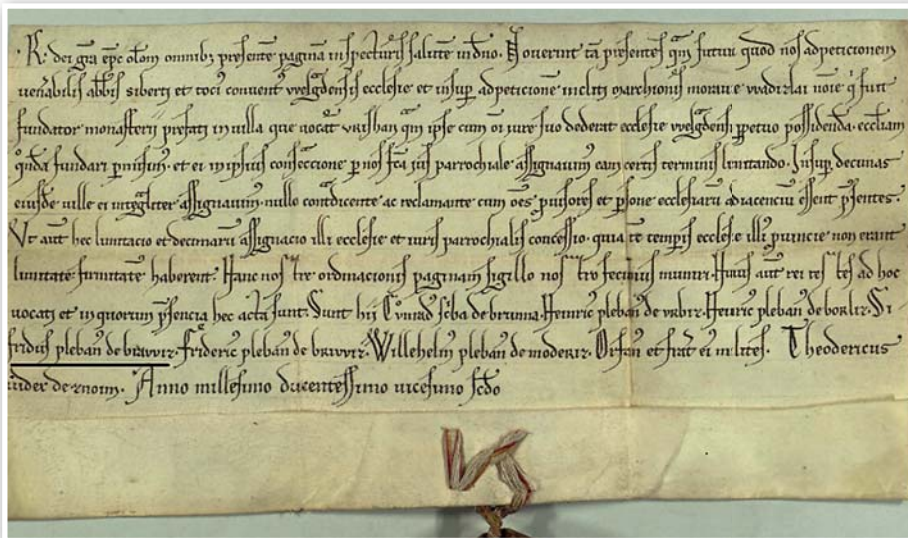 R. dei gr̄a ep̄c olom̄ omnibꝫ presente paginā inspecturis salutē in dño. Noverint tā presentes q̄m futuri quod nos ad peticionem
venˀabilis abb̄is siberti et toci conventˀ welgdensis ecclesie et insup̄ ad peticionē incliti marchionis moravie wadizlai noīe q̇ fuit
fundator monasterii prefati in villa que vocat̄ vrisban q̄m ipse cum oī iure suo dederat ecclesie welgdensi ꝑpetuo possidendā. eccl̄iam
fundari et ei in ipsius consecracione ꝑ nos fc̄a ius parrochiale assignavimˀ eam certis terminis limitando. Insup̄ decimas
eiusdē ville ei inteḡliter assignavimˀ nullo contˀdicente ac reclamante cum oēs et ꝑsone ecclesiarū essent p̄sentes.
Vt aūt hec limitacio et decimarū assignacio illi ecclesie et iuris parrochialis concessio. quia tēpis ecclesie illiˀ ꝓvincie non erant
limitate firmitatē haberent. Hanc nos tre ordinacionis paginam sigillo nos tro fecimus muniri. Huius aūt rei tes tes ad hoc
vocati et in quorum p̄sencia hec acta sunt. Sunt hii Cūnradˀ sc̄ba de brunna. Heinricˀ plebanˀ de vrbiz. Henricˀ plebanˀ de borliz. Si
fridus plebanˀ de Fridericˀ plebanˀ de Willehelmˀ plebanˀ de moderiz. et fratˀ eiˀ milites. Theodericus
iudex de znoim. Anno millesimo ducentessimo vicesimo sc̄do